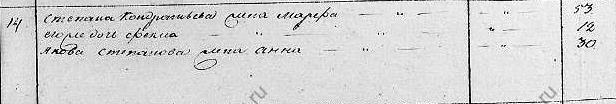 14 Степана Кондратьева жена Марфа — " — — " — 53
его же дочь Фекла — " — " — 12
Якова Степанова жена Анна — " — — " — 30